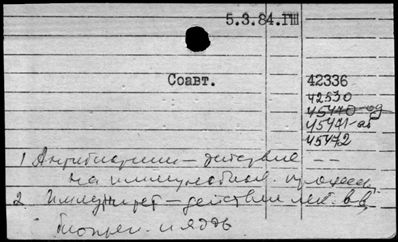 5.3.84.ГШ
Соавт.
42336
42530
45470-од
45471-ав
45472
1 Антибиотики — действие — —
на иммунобиол. процессы
2. Иммунитет — действие лек. в-в,
биопреп. и ядов